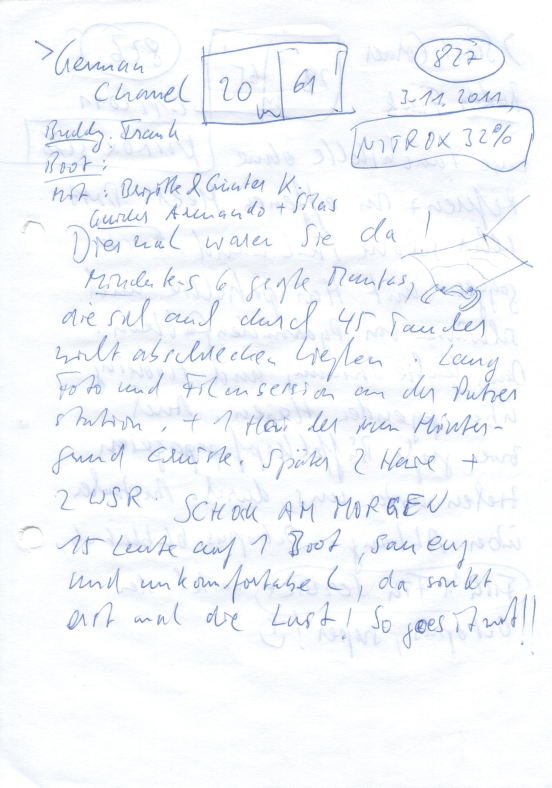 > German
Channel
20
61
827
3.11.2011
NITROX 32%
Buddy: Frank
Boot:
mit: Brigitte & Günter K.
Guides Armando + Silas
Diesmal waren Sie da!
Mindestens 6 große Mantas,
die sich auch durch 45 Taucher
nicht abschrecken ließen. Lang
Foto und Filmsession an der Putzer
station. + 1 Hai der im Hinter-
grund cruiste. Später 2 Haie +
2 WSR SCHON AM MORGEN
15 Leute auf 1 Boot, sau eng
und unkomfortabel, da sinkt
erst mal die Lust! So goes it not!!